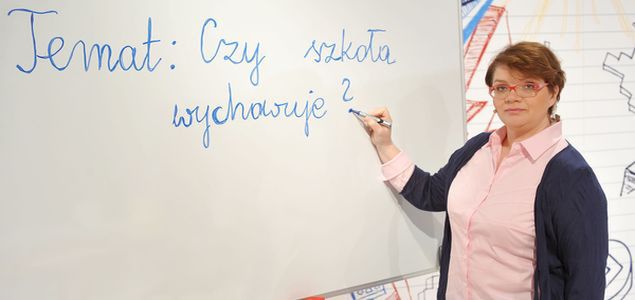 Temat: Czy szkoła
wychowuje?